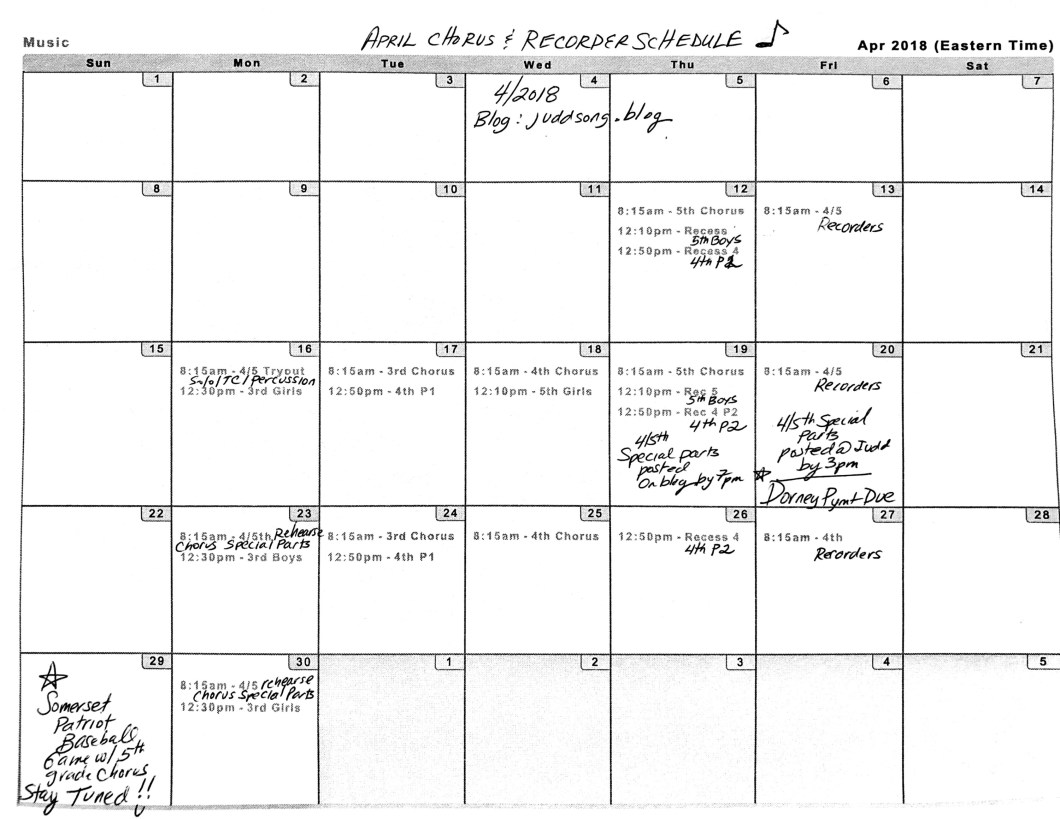 Music
APRIL CHORUS & RECORDER SCHEDULE
Apr 2018 (Eastern Time)
Sun Mon Tue Wed Thu Fri Sat
1 2 3 4 5 6 7
4/2018
Blog: juddsong.blog
8 9 10 11 12 13 14
8:15am - 5th Chorus
12:10pm - Recess
5th Boys
12:50pm - Recess 4
4th P2
8:15am - 4/5
Recorders
15 16 17 18 19 20 21
8:15am - 4/5 Tryout
Solo/TC/percussion
12:30pm - 3rd Girls
8:15am - 3rd Chorus
12:50pm - 4th P1
8:15am - 4th Chorus
12:10pm - 5th Girls
8:15am - 5th Chorus
12:10pm - Rec 5
5th Boys
12:50pm - Rec 4 P2
4th P2
4/5th
Special parts
posted
On blog by 7pm
8:15am - 4/5
Recorders
4/5th Special
Parts
posted @ Judd
by 3pm
Dorney Pymt Due
22 23 24 25 26 27 28
8:15am - 4/5th Rehearse
Chorus Special Parts
12:30pm - 3rd Boys
8:15am - 3rd Chorus
12:50pm - 4th P1
8:15am - 4th Chorus
12:50pm - Recess 4
4th P2
8:15am - 4th
Recorders
29 30 1 2 3 4 5
Somerset
Patriot
Baseball
Game w/ 5th
grade Chorus
Stay Tuned!!
8:15am - 4/5 rehearse
Chorus Special Parts
12:30pm - 3rd Girls